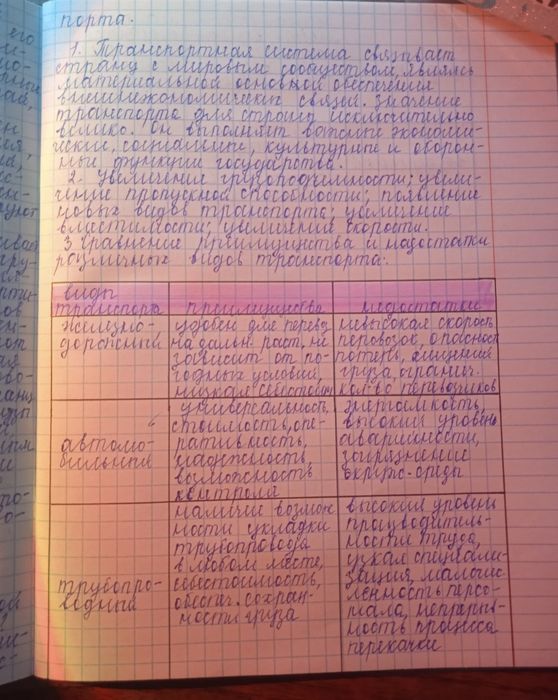 порта.
1. Транспортная система связывает
страну с мировым сообществом, являясь
материальной основой обеспечения
внешнеэкономических связей. Значение
транспорта для страны исключительно
велико. Он выполняет важные экономи-
ческие, социальные, культурные и оборон-
ные функции государства.
2. Увеличение грузоподъемности; увели-
чение пропускной способности; появление
новых видов транспорта; увеличение
вместимости; увеличение скорости.
3 Сравнение преимущества и недостатки
различных видов транспорта.
виды
транспорта преимущества недостатки
железно-
дорожный
удобен для перевоз
на дальн. раст, не
зависит от по-
годных условий,
низкая себестоим
невысокая скорость
перевозок, опасность
потерь, хищения
груза, огранич.
кол-во перевозчиков
автомо-
бильный
универсальность,
стоимость, опе-
ративность,
надежность,
возможность
контроля
энергоемкость,
высокий уровень
аварийности,
загрязнение
окруж-среды
трубопро-
водный
наличие возмож
ности укладки
трубопровода
в любом месте,
себестоимость,
обеспеч. сохран-
ности груза
высокий уровень
производитель-
ности труда,
узкая специали-
зация, малочис-
ленность персо-
нала, непрерыв-
ность процесса
перекачки